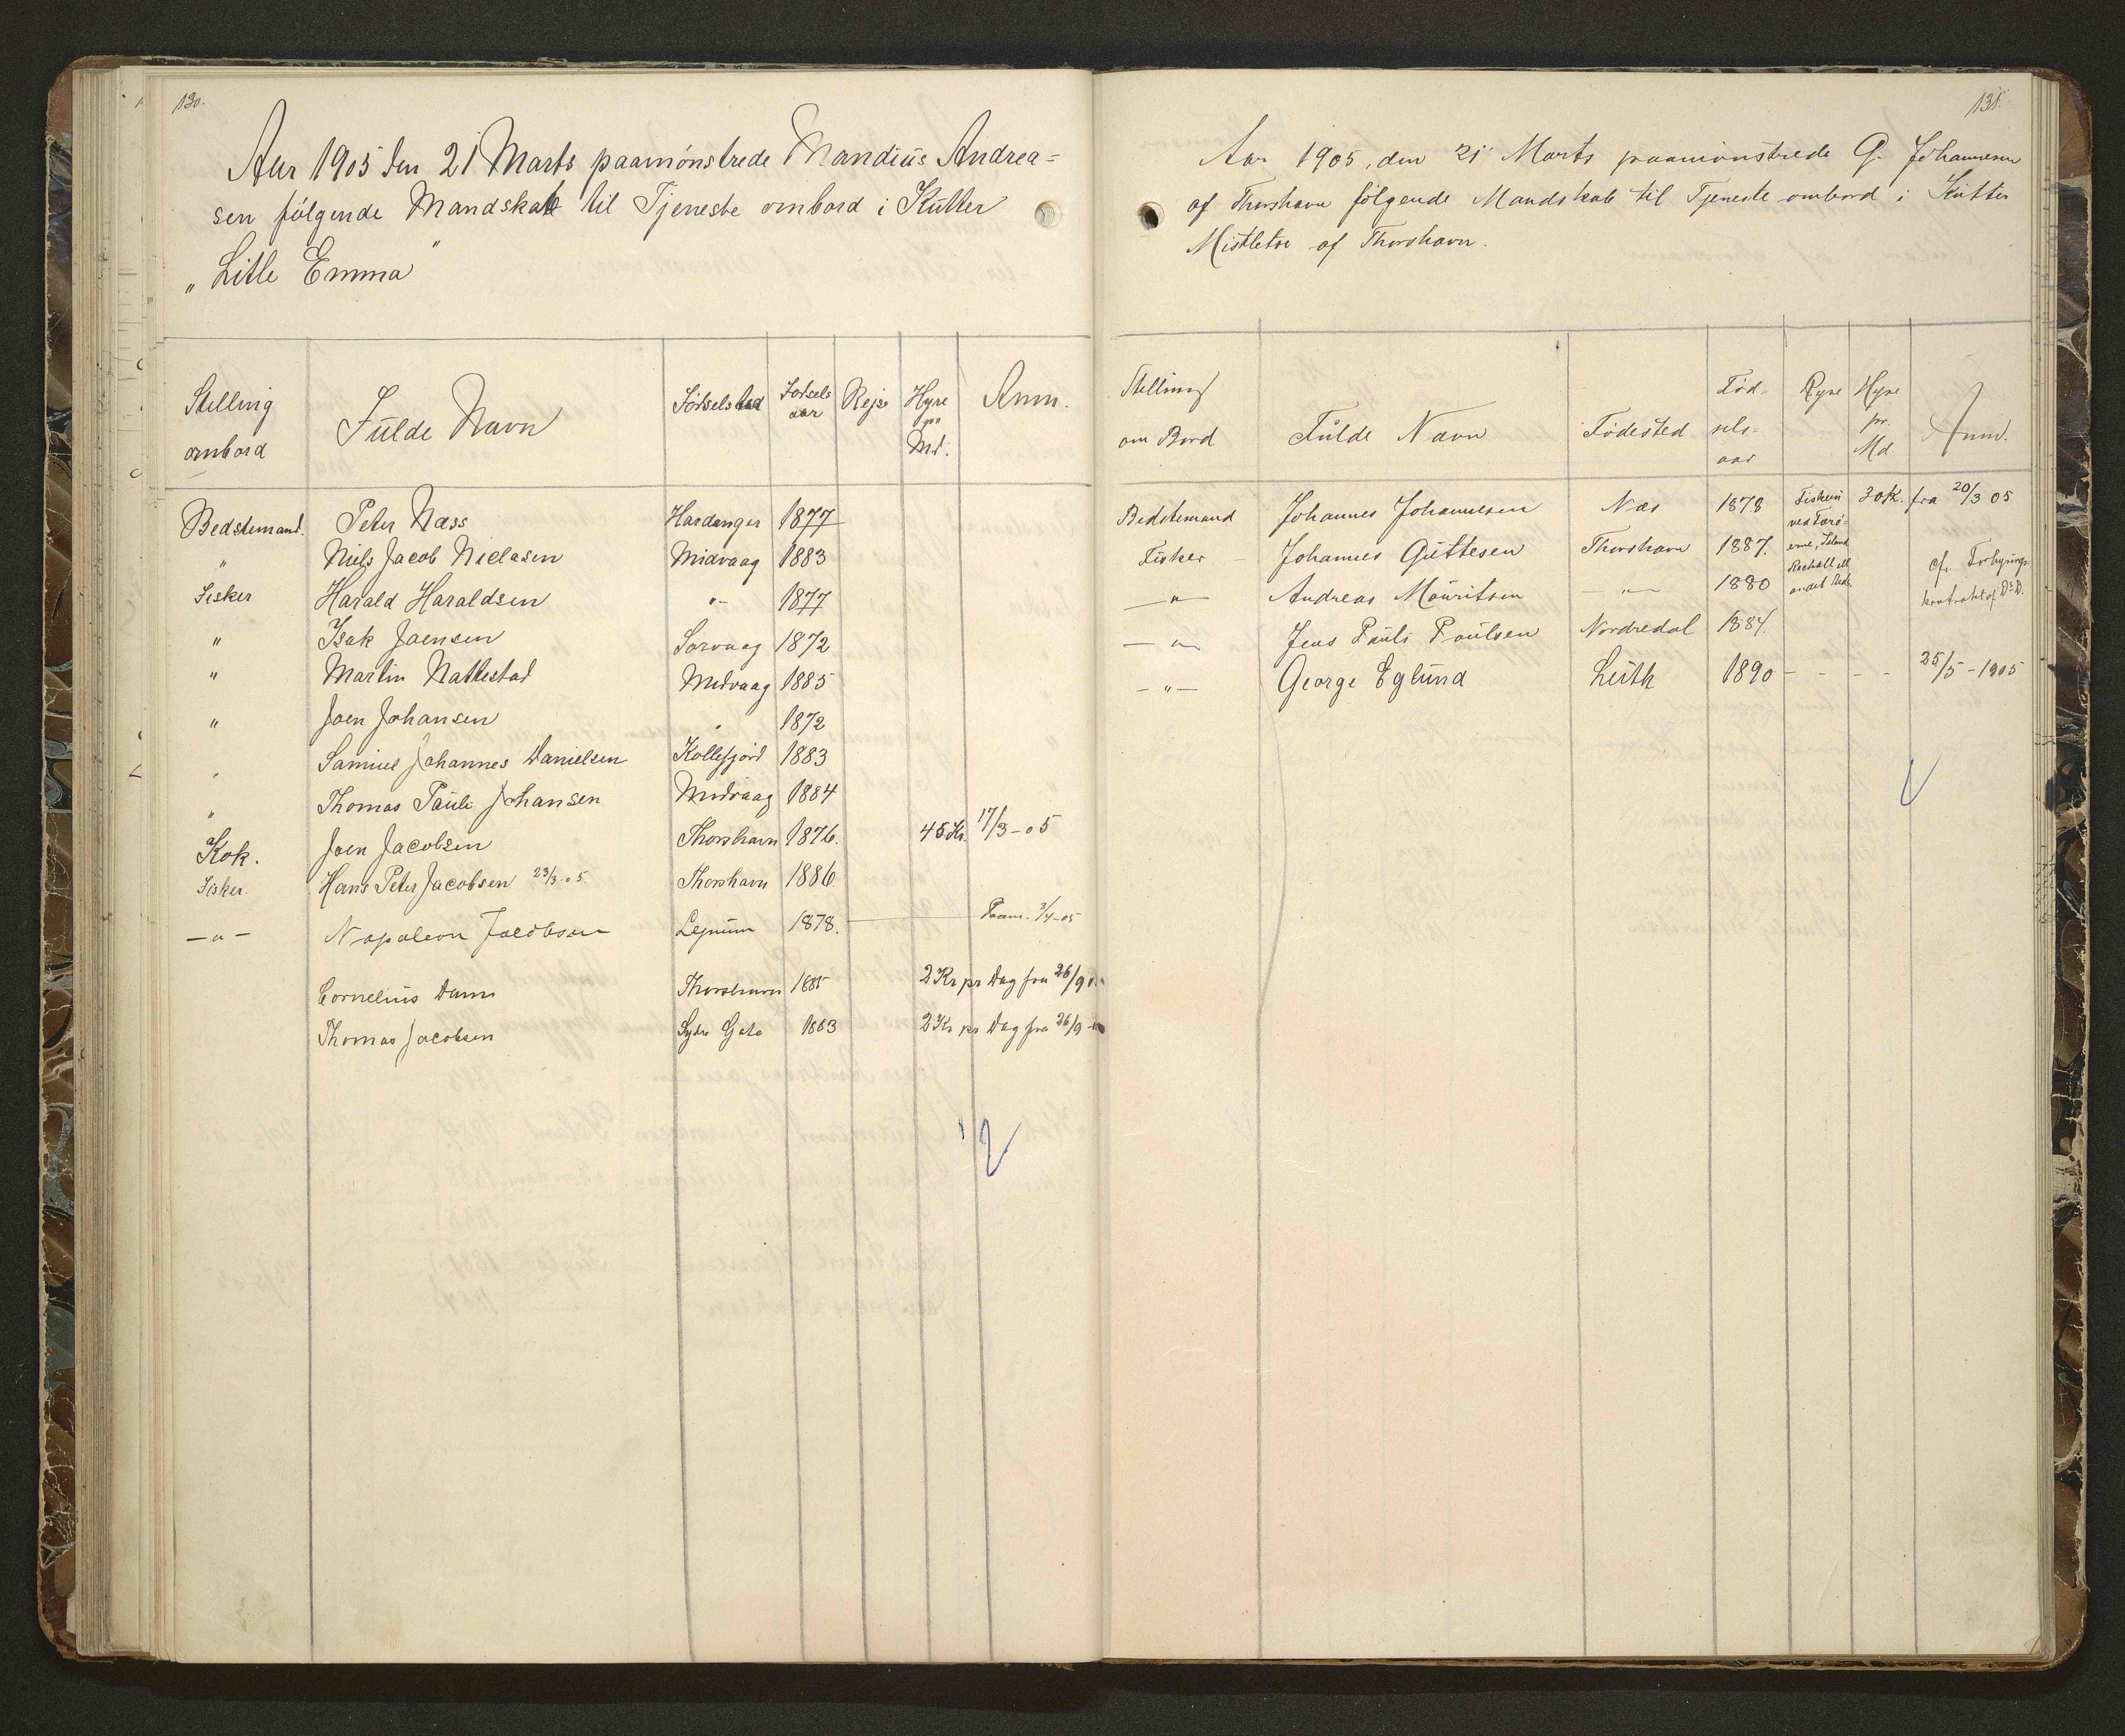 130.
Aar 1905 den 21 Marts paamónstrede Mandius Andrea=
sen fólgende Mandskab til Tjeneste ombord i Kutter
„Litle Emma"
Stelling ombord Fulde Navn Fódselsted Fodsels aar Rejse Hyre pr Md. Anm.
Bedstemand. Peter Næss Hardanger 1877
" Niels Jacob Niclasen Midvaag 1883
Fisker Harald Haraldsen "- 1877
" Isak Joensen Sorvaag 1872
" Martin Nattestad Midvaag 1885
" Joen Johansen " 1872
" Samuel Johannes Danielsen Kollefjord 1883
" Thomas Pauli Johansen Midvaag 1884
Kok. Joen Jacobsen Thorshavn 1876. 45 Kr. 17/3-05
Fisker. Hans Peter Jacobsen 23/3-05. Thorshavn 1886.
—"— Napoleon Jacobsen Lejnum 1878. Paam. 3/4-05
Cornelius Dam Thorshavn 1885 2 Kr pr Dag fra 26/9
Thomas Jacobsen Sydre Gøte 1883 2 Kr pr Dag fra 26/9
12
131.
Aar 1905, den 21 Marts paamónstrede G. Johannesen
af Thorshavn fólgende Mandskab til Tjeneste ombord i Kutter
Mistletoe af Thorshavn.
Stelling om Bord Fulde Navn Fódested Fód= sels= aar Rejse Hyre pr. Md. Anm.
Bedstemand Johannes Johannesen Næs 1878 Fiskeri 30 K. fra 20/3 05
ved Færö=
Fisker Johannes Guttesen Thorshavn 1887. erne, Island
cfr. Forhyrings
Rockall ell
—"— Andreas Mouritsen —"— 1880 andet Sted. kontrakt af D.D.
—"— Jens Pauli Poulsen Nordredal 1884.
—"— George Eglund Leith 1890 - - - - 25/5-1905